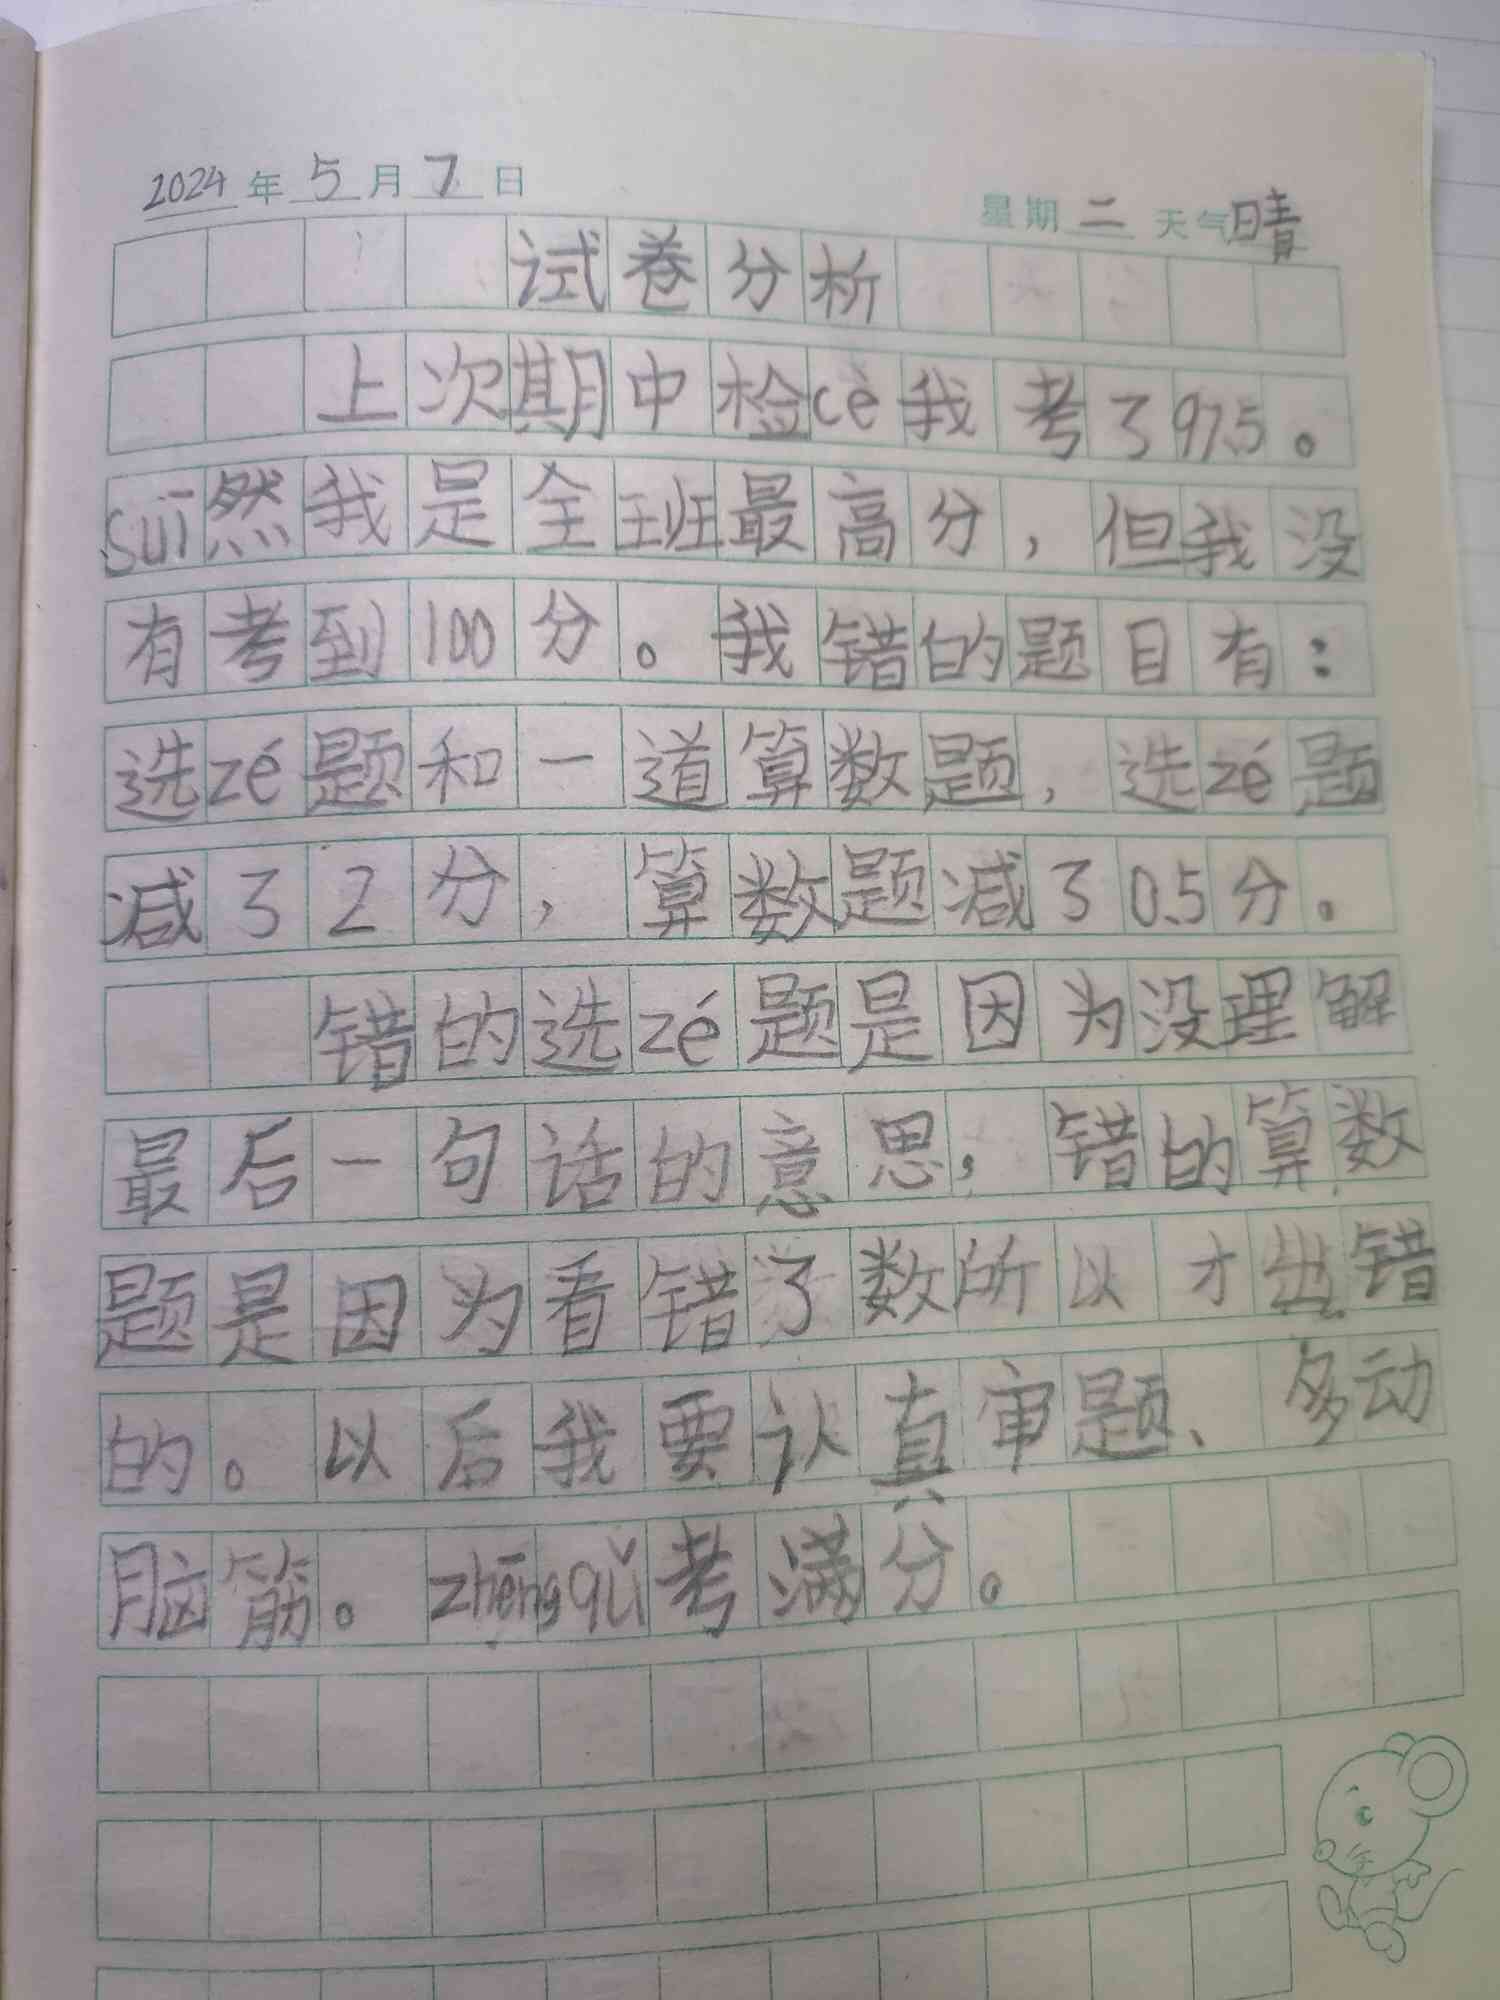 2024年5月7日 星期二 天气晴
试卷分析
上次期中检cè我考了97.5。
suī然我是全班最高分，但我没
有考到100分。我错的题目有：
选zé题和一道算数题，选zé题
减了2分，算数题减了0.5分。
错的选zé题是因为没理解
最后一句话的意思，错的算数
题是因为看错了数所以才出错
的。以后我要认真审题、多动
脑筋。zhēngqǔ考满分。